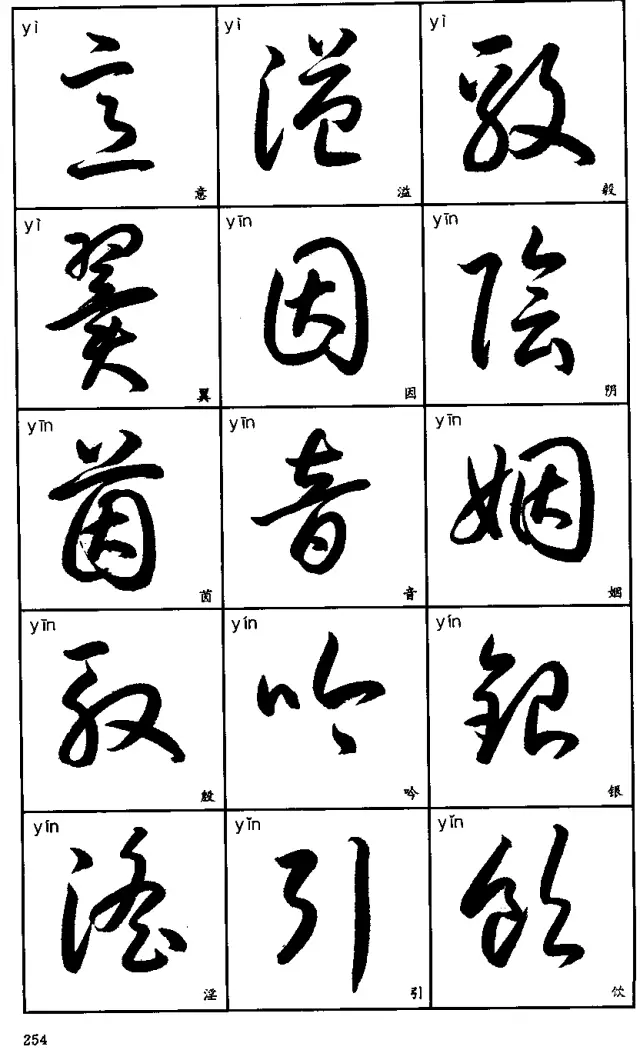 yì yì yì
意 溢 毅
yì yīn yīn
翼 因 阴
yīn yīn yīn
茵 音 姻
yīn yín yín
殷 吟 银
yín yǐn yǐn
淫 引 饮
254